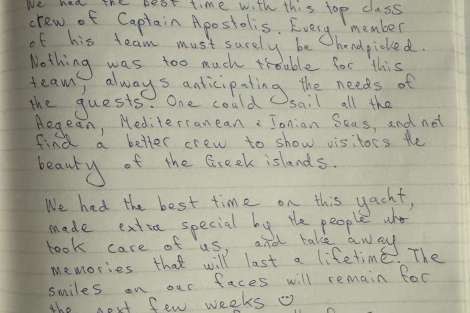 We had the best time with this top class
crew of Captain Apostolis. Every member
of his team must surely be handpicked.
Nothing was too much trouble for this
team, always anticipating the needs of
the guests. One could sail all the
Aegean, Mediterranean & Ionian Seas, and not
find a better crew to show visitors the
beauty of the Greek islands.
We had the best time on this yacht,
made extra special by the people who
took care of us, and take away
memories that will last a lifetime. The
smiles on our faces will remain for
the next few weeks ☺